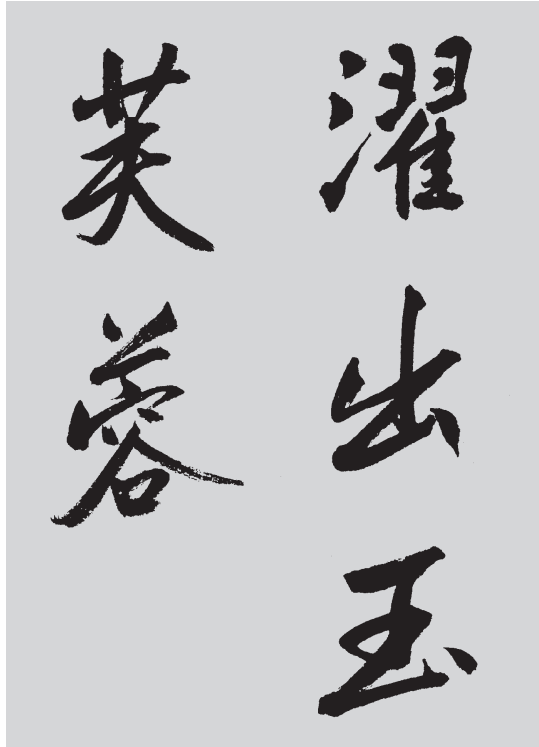 濯出玉
芙蓉